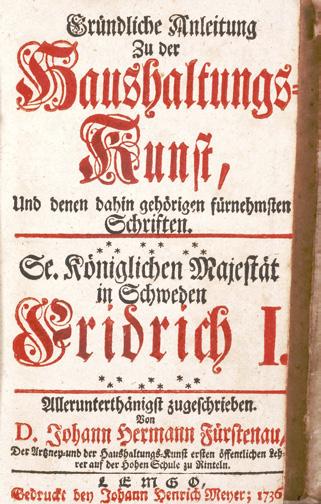 Gründliche Anleitung
Zu der
Haushaltungs-
Kunst,
Und denen dahin gehörigen fürnehmsten
Schriften.
* * * * * *
Se. Königlichen Majestät
in Schweden
Fridrich I.
* * * * * *
Allerunterthänigst zugeschrieben.
Von
D. Johann Hermann Fürstenau,
Der Artzney-und der Haushaltungs-Kunst ersten öffentlichen Leh-
rer auf der Hohen Schule zu Rinteln.
LEMGO,
Gedruckt bey Johann Henrich Meyer; 1736